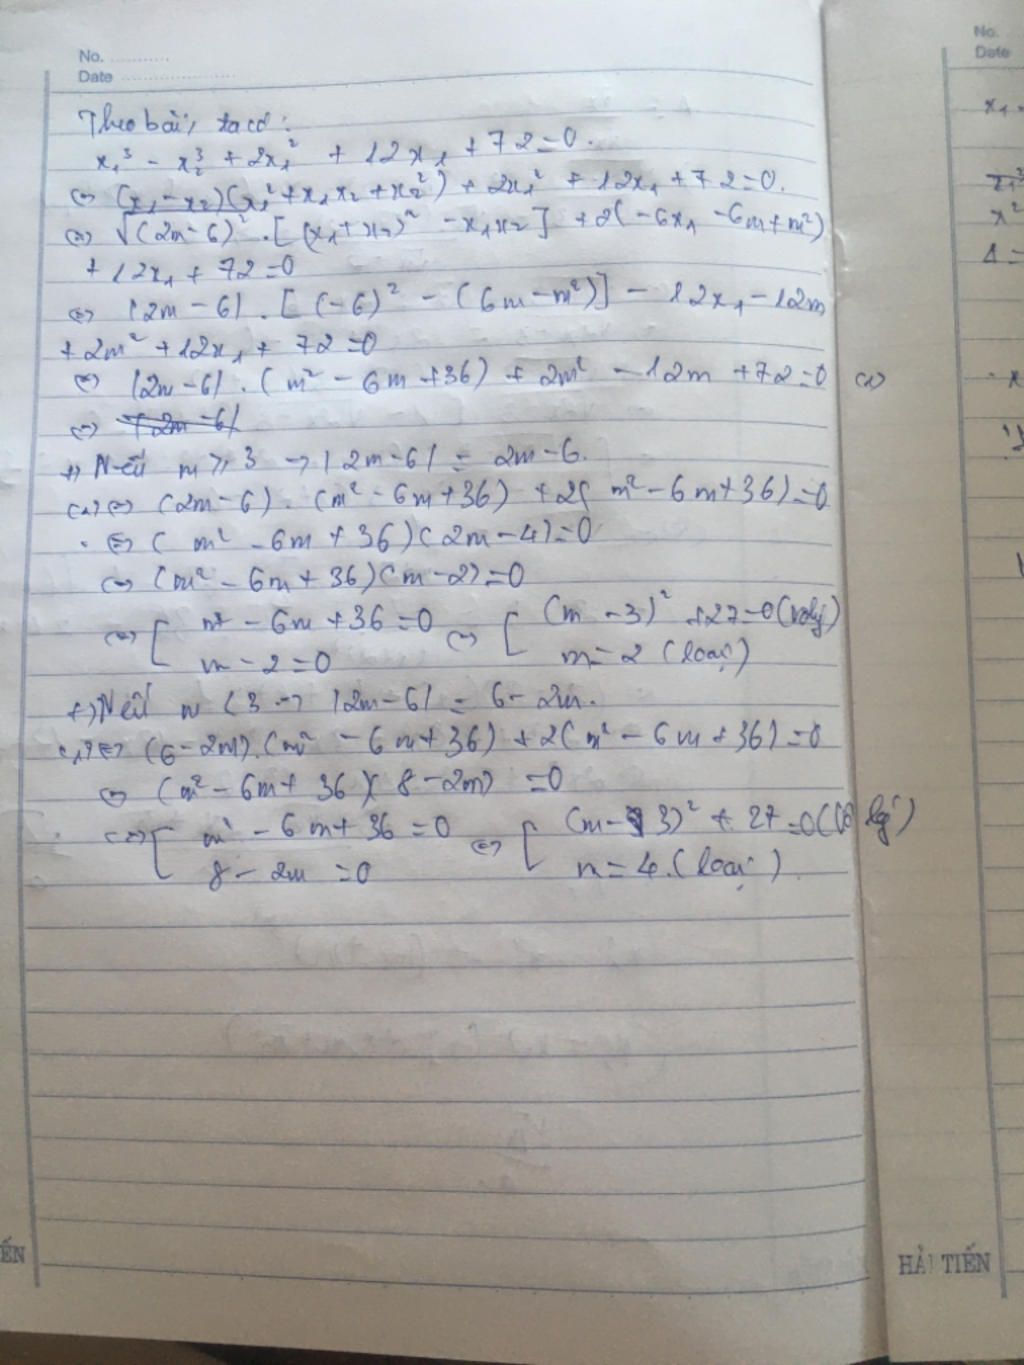 No. ............
Date ....................
Theo bài, ta có:
x₁³ - x₂³ + 2x₁² + 12x₁ + 72 = 0.
⇔ (x₁ - x₂)(x₁² + x₁x₂ + x₂²) + 2x₁² + 12x₁ + 72 = 0.
⇔ √(2m-6)² . [(x₁+x₂)² - x₁x₂] + 2(-6x₁ - 6m + m²)
+ 12x₁ + 72 = 0
⇔ |2m-6| . [(-6)² - (6m - m²)] - 12x₁ - 12m
+ 2m² + 12x₁ + 72 = 0
⇔ |2m-6| . (m² - 6m + 36) + 2m² - 12m + 72 = 0 (1)
⇔ |2m-6|
+) Nếu m ≥ 3 → |2m-6| = 2m-6.
(1) ⇔ (2m-6) . (m² - 6m + 36) + 2(m² - 6m + 36) = 0
⇔ (m² - 6m + 36)(2m-4) = 0
⇔ (m² - 6m + 36)(m-2) = 0
⇔ [ m² - 6m + 36 = 0 ⇔ [ (m-3)² + 27 = 0 (vô lý)
m - 2 = 0 m = 2 (loại)
+) Nếu m < 3 → |2m-6| = 6-2m.
(1) ⇔ (6-2m).(m² - 6m + 36) + 2(m² - 6m + 36) = 0
⇔ (m² - 6m + 36)(8-2m) = 0
⇔ [ m² - 6m + 36 = 0 ⇔ [ (m-3)² + 27 = 0 (vô lý)
8 - 2m = 0 m = 4. (loại).
No.
Date
HẢI TIẾN